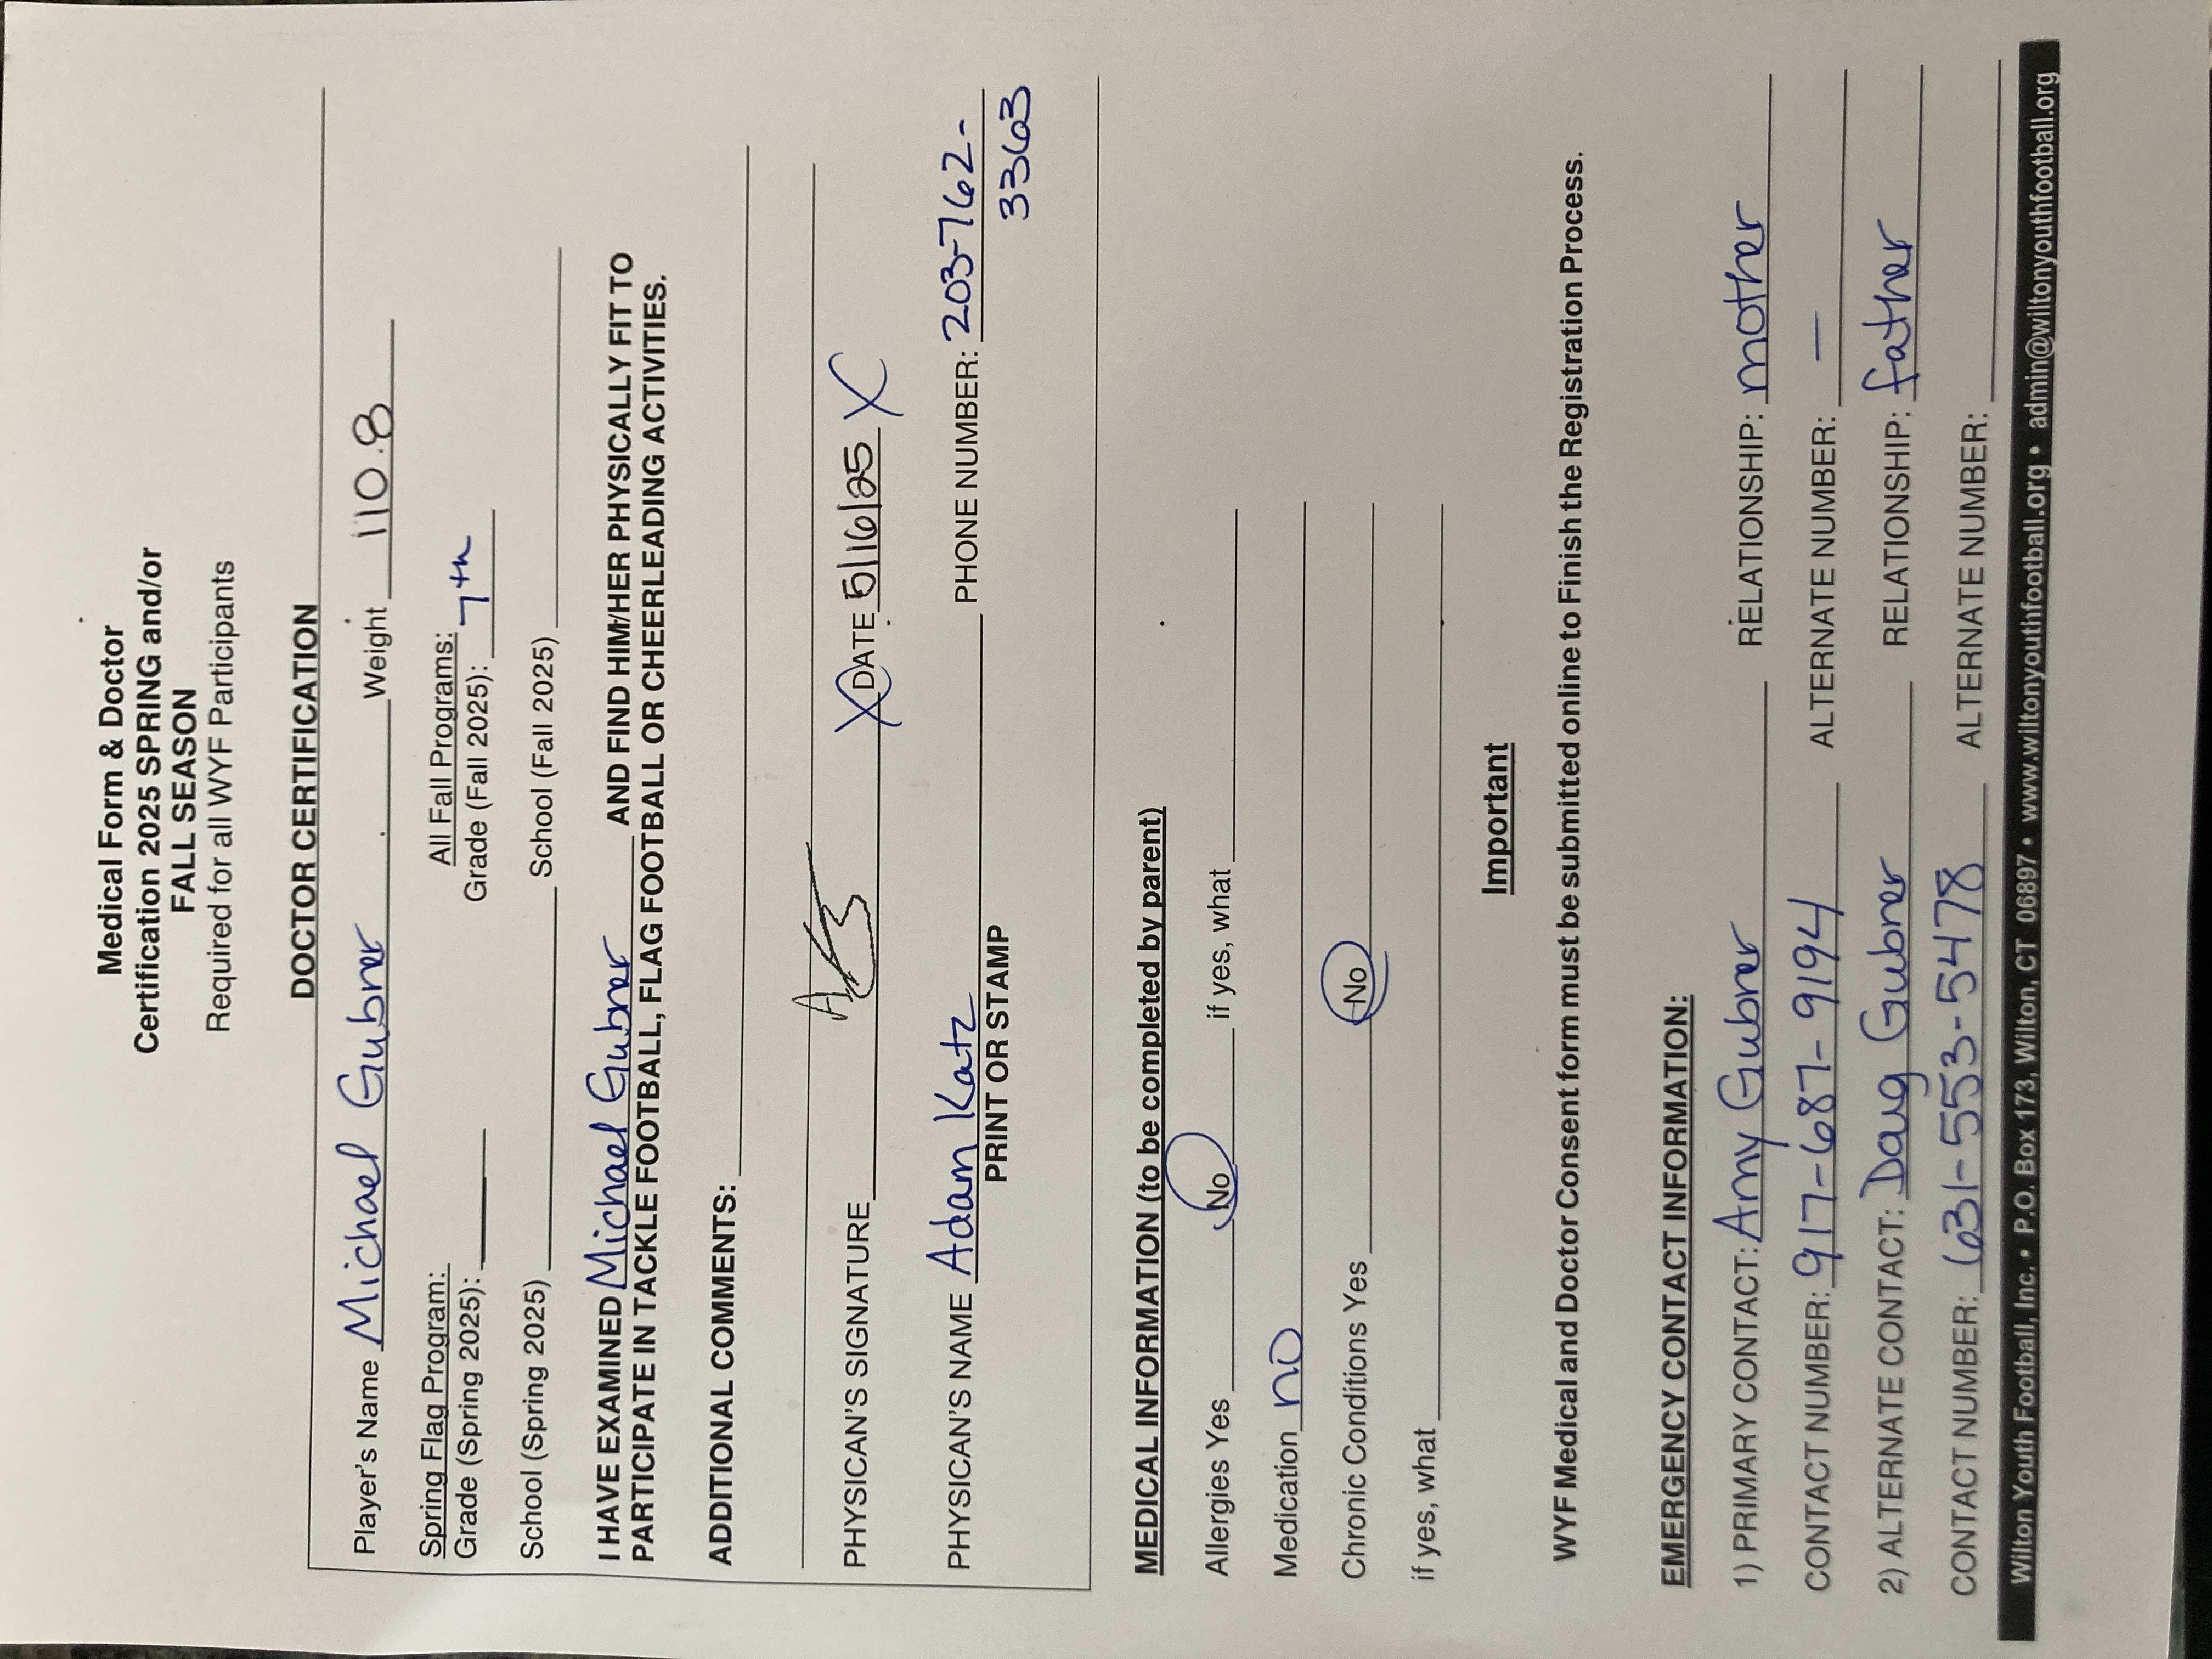 Medical Form & Doctor
Certification 2025 SPRING and/or
FALL SEASON
Required for all WYF Participants
DOCTOR CERTIFICATION
Player's Name Michael Gubner Weight 110.8
Spring Flag Program: All Fall Programs:
Grade (Spring 2025): Grade (Fall 2025): 7th
School (Spring 2025) School (Fall 2025)
I HAVE EXAMINED Michael Gubner AND FIND HIM/HER PHYSICALLY FIT TO
PARTICIPATE IN TACKLE FOOTBALL, FLAG FOOTBALL OR CHEERLEADING ACTIVITIES.
ADDITIONAL COMMENTS:
PHYSICAN'S SIGNATURE X DATE 5/16/25 X
PHYSICAN'S NAME Adam Katz PHONE NUMBER: 203-762-
3363
PRINT OR STAMP
MEDICAL INFORMATION (to be completed by parent)
Allergies Yes No if yes, what
Medication no
Chronic Conditions Yes No
if yes, what
Important
WYF Medical and Doctor Consent form must be submitted online to Finish the Registration Process.
EMERGENCY CONTACT INFORMATION:
1) PRIMARY CONTACT: Amy Gubner RELATIONSHIP: mother
CONTACT NUMBER: 917-687-9194 ALTERNATE NUMBER: —
2) ALTERNATE CONTACT: Doug Gubner RELATIONSHIP: father
CONTACT NUMBER: 631-553-5478 ALTERNATE NUMBER:
Wilton Youth Football, Inc. • P.O. Box 173, Wilton, CT 06897 • www.wiltonyouthfootball.org • admin@wiltonyouthfootball.org